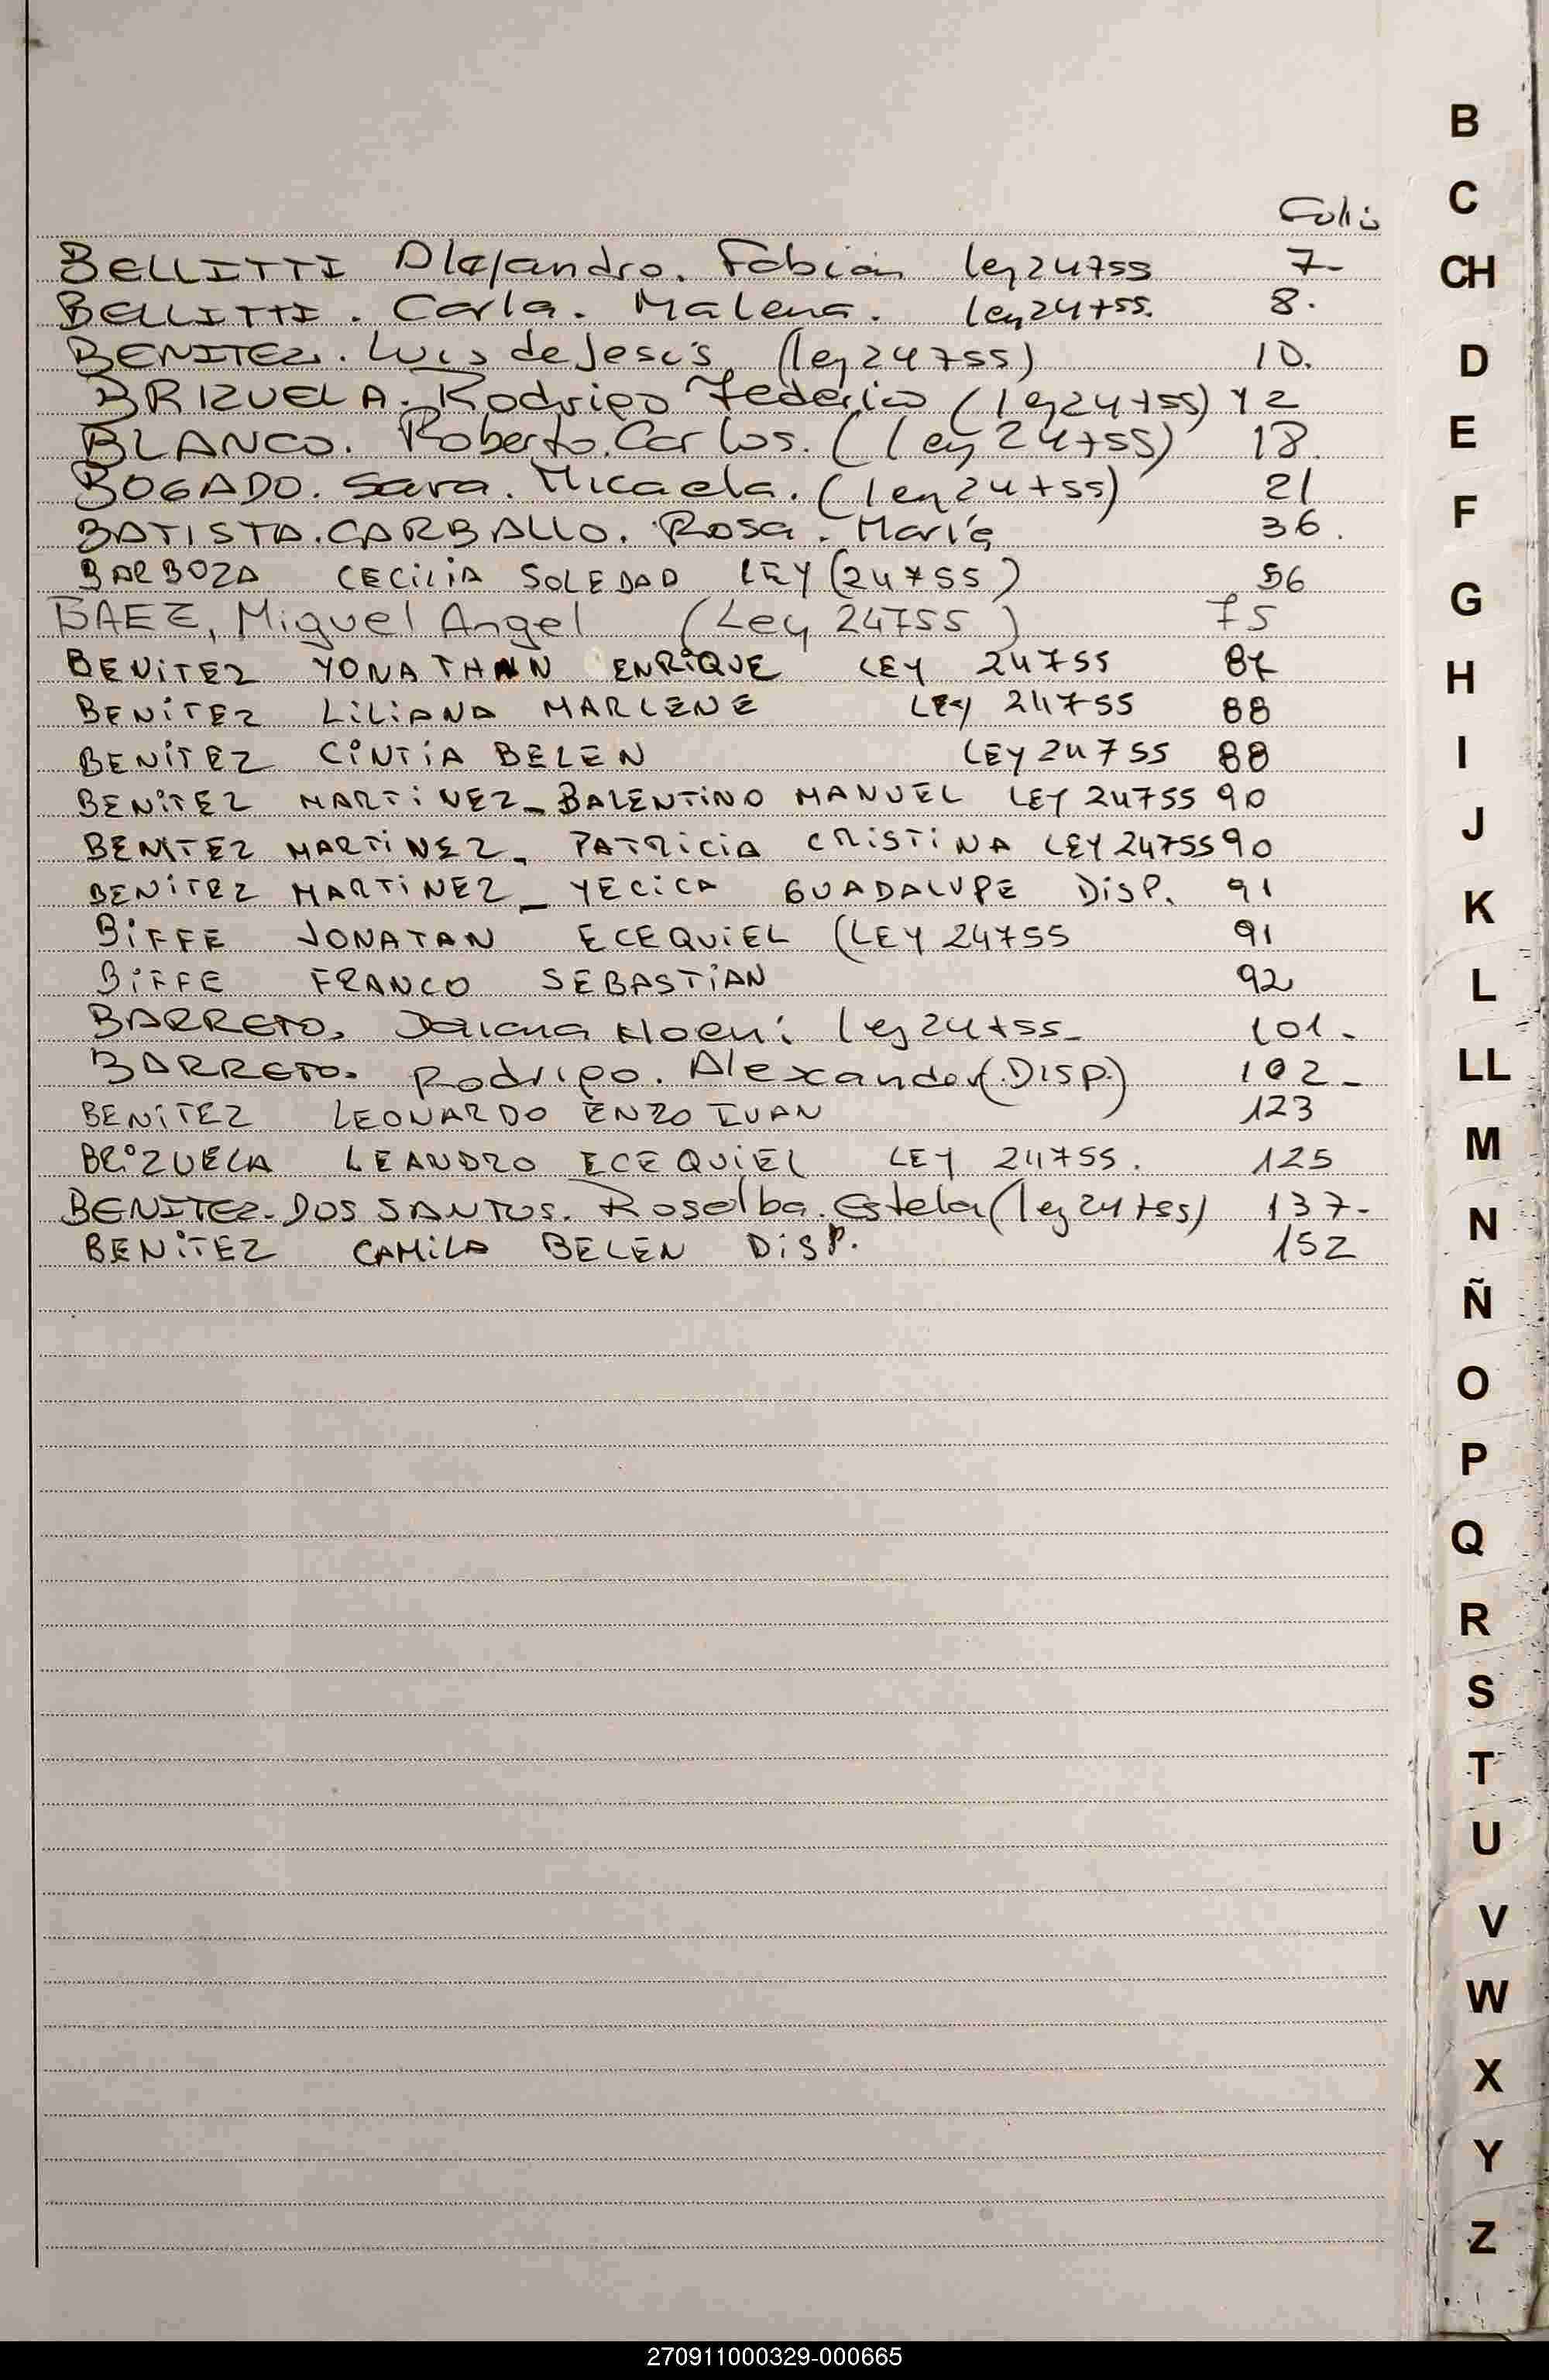 Folio
BELLITTI Alejandro. Fabián ley 24755 7-
BELLITTI. Carla. Malena. ley 24755. 8.
BENITEZ. Luis de Jesús (ley 24755) 10.
BRIZUELA. Rodrigo Federico (ley 24755) 12
BLANCO. Roberto. Carlos. (ley 24755) 18.
BOGADO. Sara. Micaela. (ley 24755) 21
BATISTA. CARBALLO. Rosa. María 36.
BARBOZA CECILIA SOLEDAD LEY (24755) 56
BAEZ, Miguel Angel (Ley 24755) 75
BENITEZ YONATHAN ENRIQUE LEY 24755 87
BENITEZ LILIANA MARLENE LEY 24755 88
BENITEZ CINTIA BELEN LEY 24755 88
BENITEZ MARTINEZ_BALENTINO MANUEL LEY 24755 90
BENITEZ MARTINEZ_ PATRICIA CRISTINA LEY 24755 90
BENITEZ MARTINEZ_ YECICA GUADALUPE DISP. 91
BIFFE JONATAN ECEQUIEL (LEY 24755 91
BIFFE FRANCO SEBASTIAN 92
BARRETO, Daiana Noemi ley 24755_ 101-
BARRETO. Rodrigo. Alexander (DISP.) 102-
BENITEZ LEONARDO ENZO IVAN 123
BRIZUELA LEANDRO ECEQUIEL LEY 24755. 125
BENITEZ-DOS SANTOS. Roselba. Estela (ley 24755) 137-
BENITEZ CAMILA BELEN DISP. 152
B
C
CH
D
E
F
G
H
I
J
K
L
LL
M
N
Ñ
O
P
Q
R
S
T
U
V
W
X
Y
Z
270911000329-000665